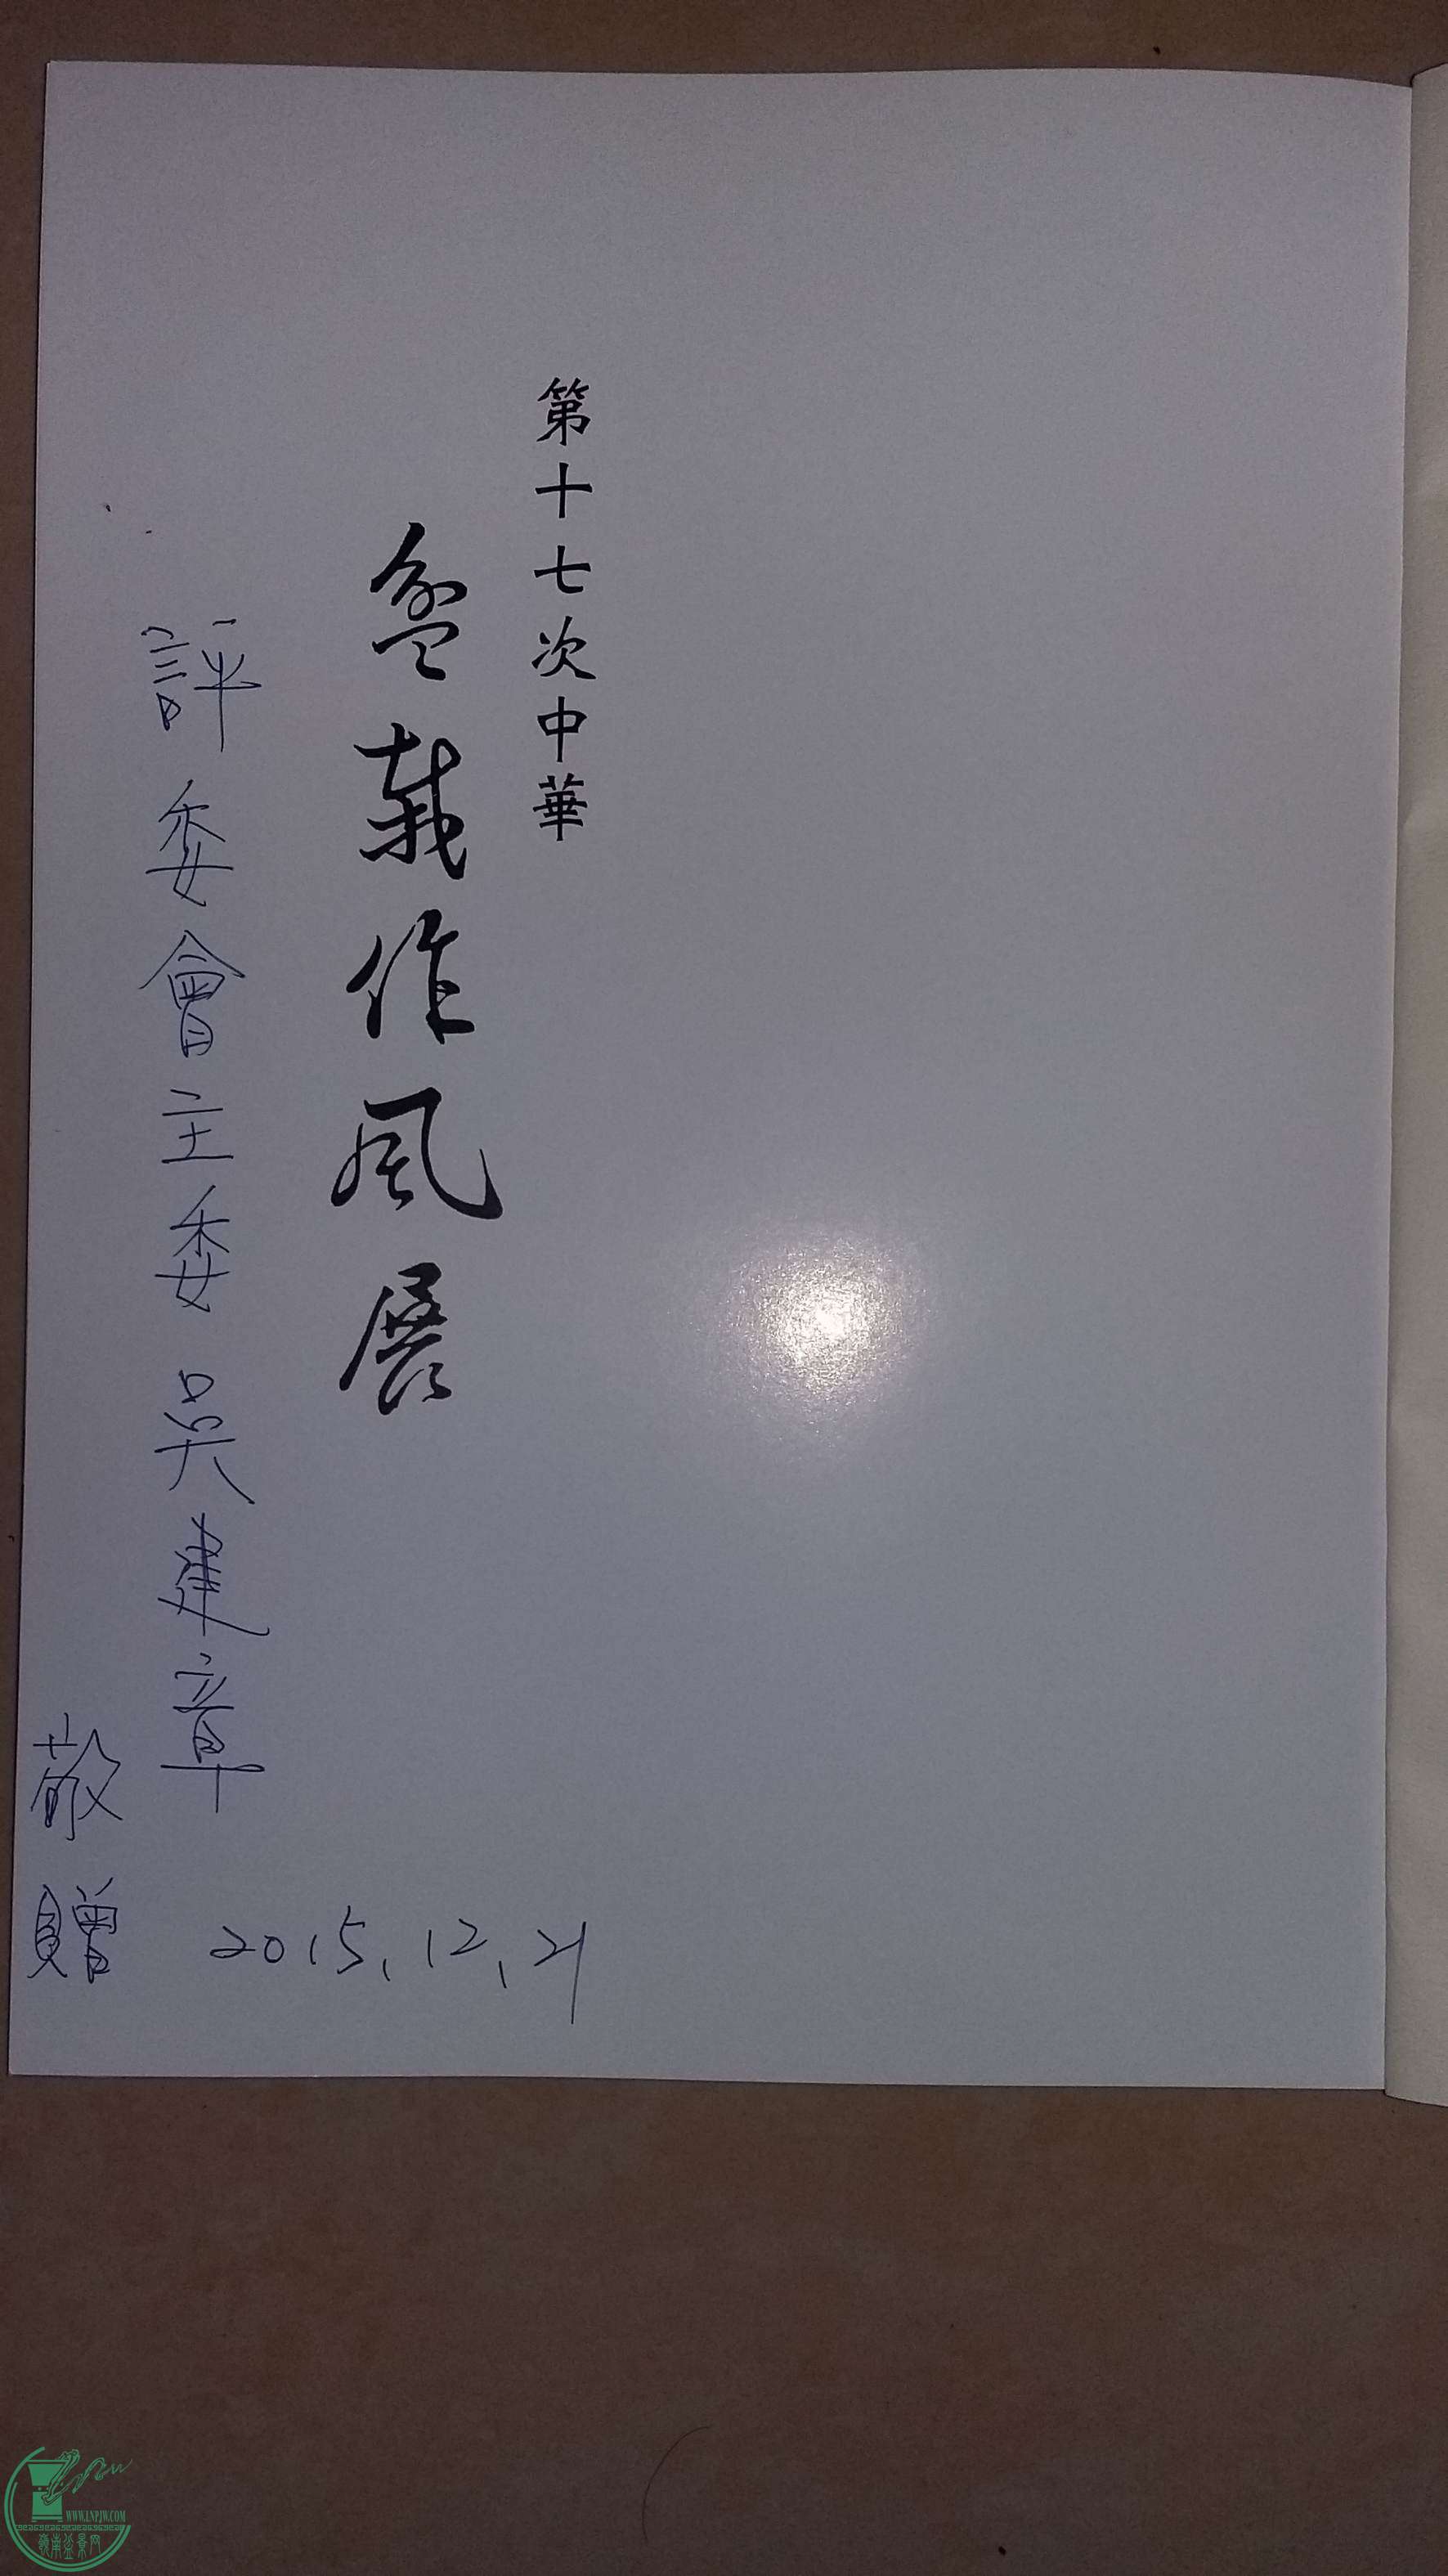 第十七次中華
盆栽作風展
評委會主委吳建章
敬贈
2015.12.21
WWW.LNPJW.COM
嶺南盆景网